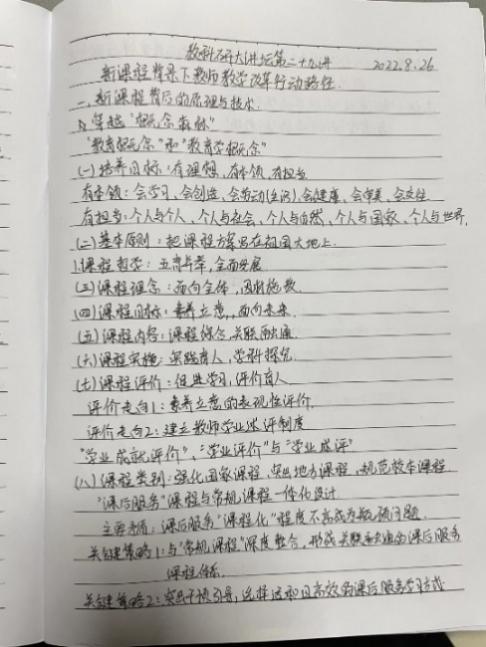 教科研大讲坛第二十九讲 2022.8.26
新课程背景下教师教学改革行动路径.
一、新课程背后的原理与技术.
1、穿越"概念森林"
"教育概念"和"教育学概念"
(一)培养目标:有理想、有本领、有担当
有本领:会学习、会创造、会劳动(生活)、会健康、会审美、会交往
有担当:个人与个人、个人与社会、个人与自然、个人与国家、个人与世界.
(二)基本原则:把课程方案写在祖国大地上.
1.课程哲学:五育并举,全面发展
(三)课程理念:面向全体,因材施教.
(四)课程目标:素养立意,面向未来.
(五)课程内容:课程综合,关联融通.
(六)课程实施:实践育人,学科探究.
(七)课程评价:促进学习,评价育人
评价走向1:素养立意的表现性评价.
评价走向2:建立教师学业述评制度
"学业成就评价"、"学业评价"与"学业述评"
(八)课程类别:强化国家课程,突出地方课程,规范校本课程.
"课后服务"课程与常规课程一体化设计
主要矛盾:课后服务"课程化"程度不高成为瓶颈问题.
关键策略1:与"常规课程"深度整合,形成关联融通的课后服务
课程体系.
关键策略2:突出干预引导,选择适和且高效的课后服务学习方式